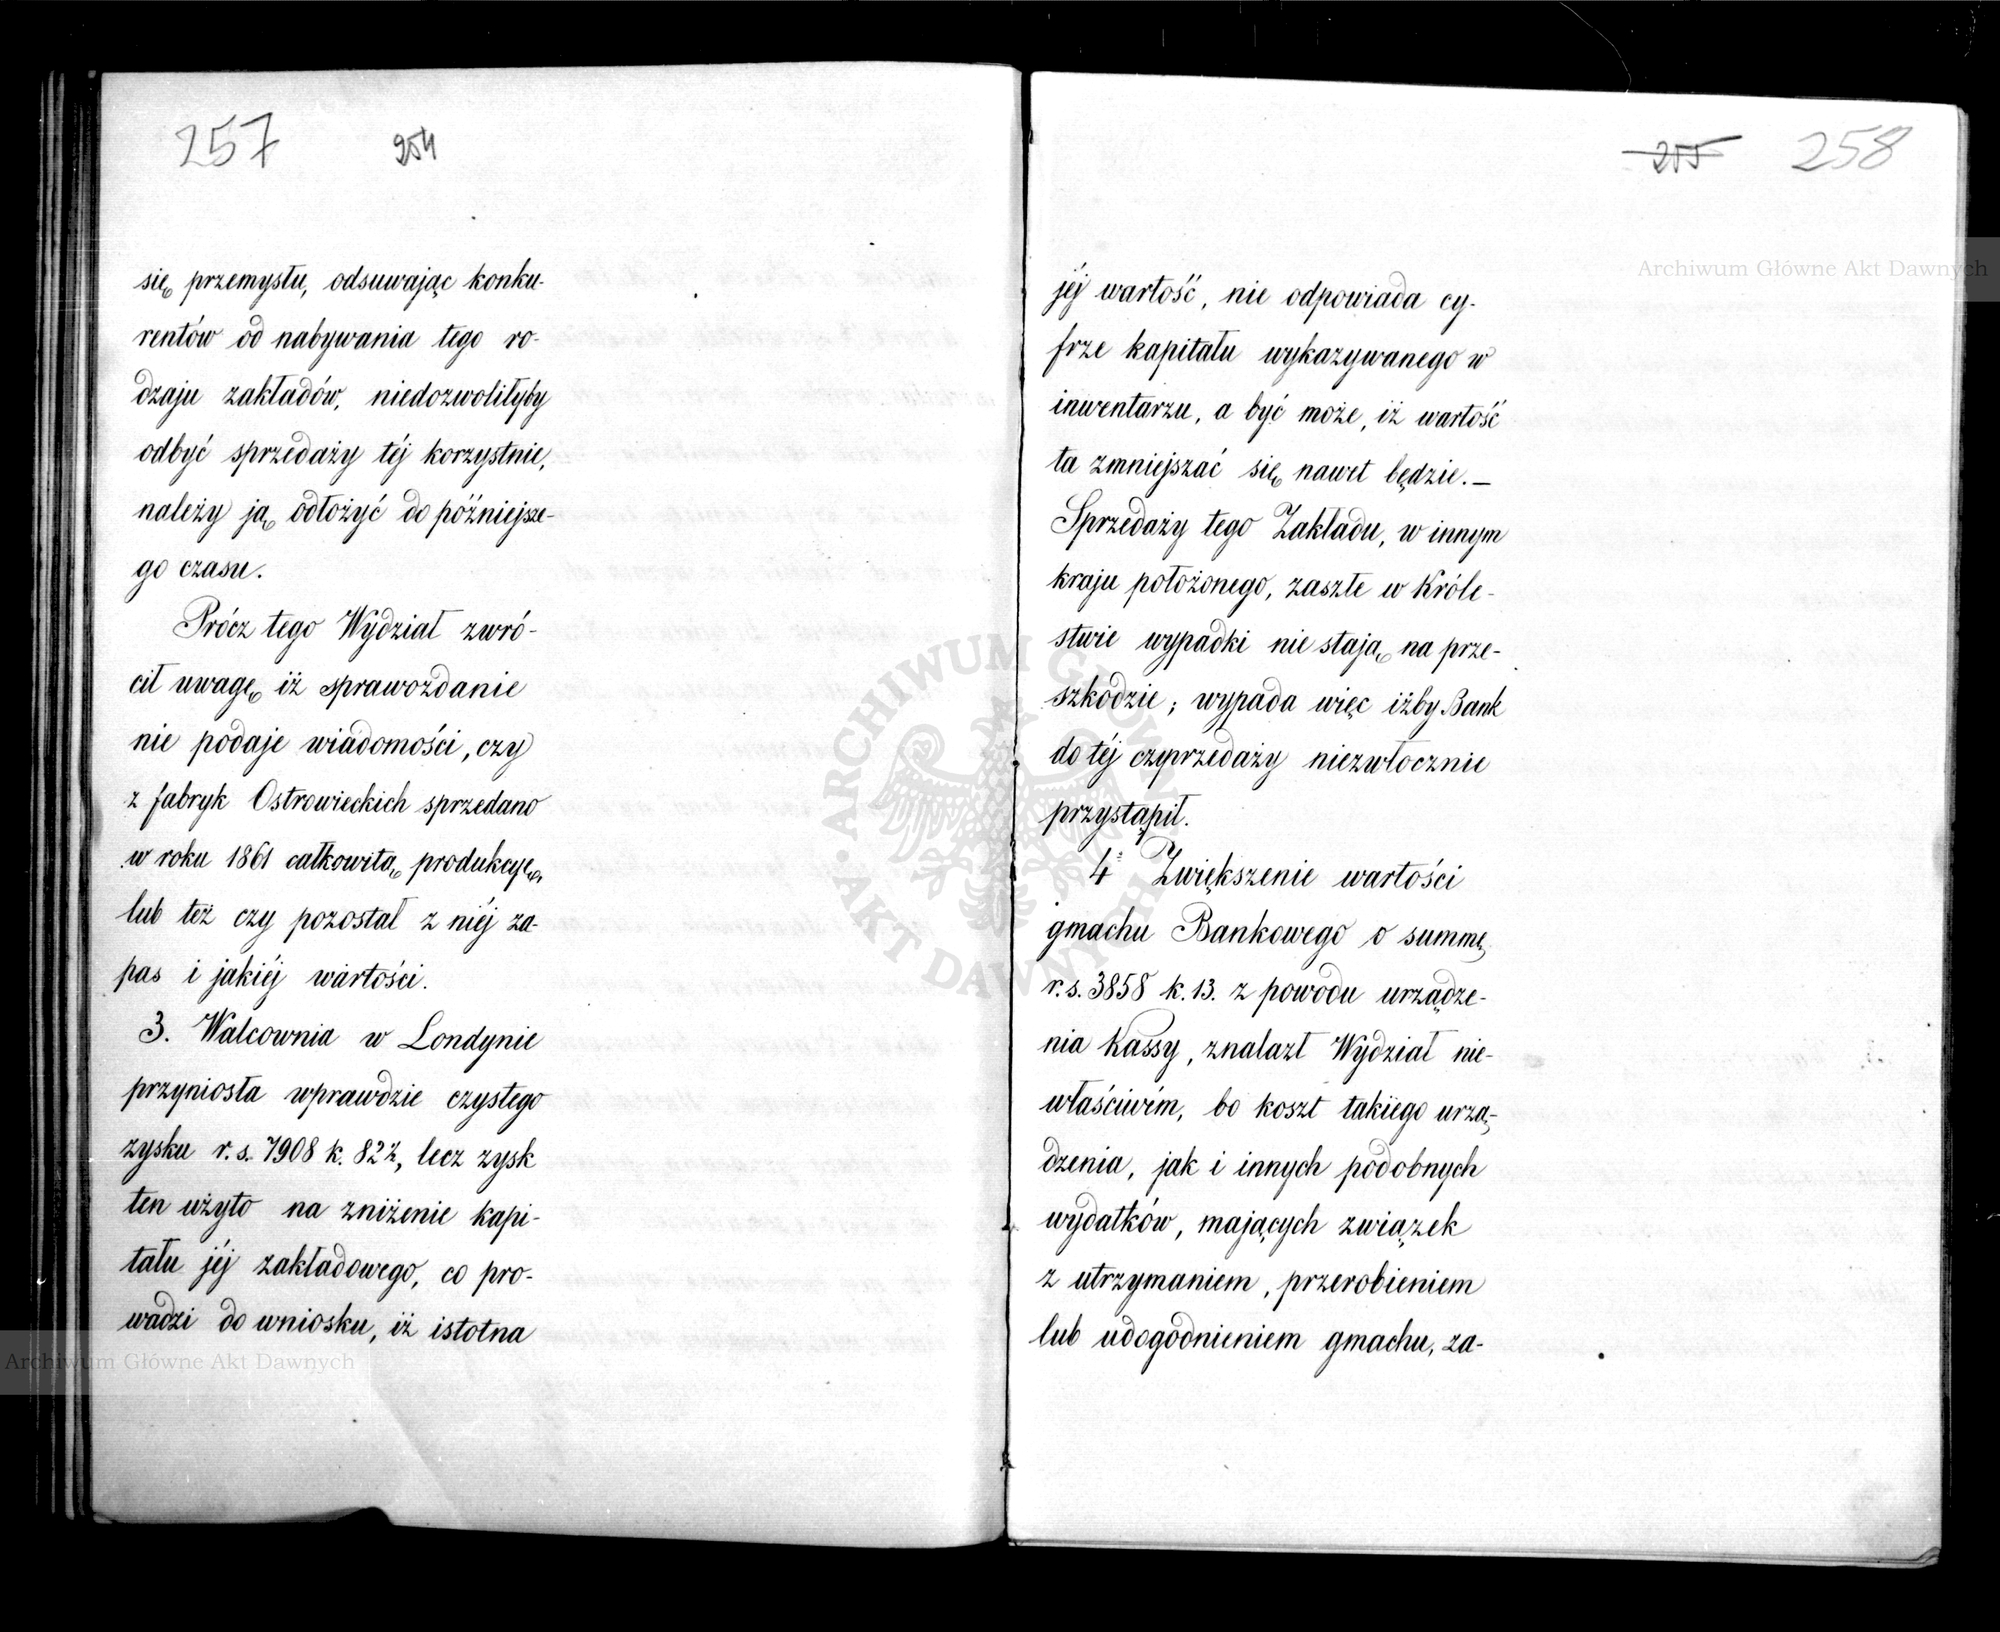 257
254
się przemysłu, odsuwając konku-
rentów od nabywania tego ro-
dzaju zakładów, niedozwoliłyby
odbyć sprzedaży téj korzystnie,
należy ją odłożyć do późniejsze-
go czasu.
Prócz tego Wydział zwró-
cił uwagę iż sprawozdanie
nie podaje wiadomości, czy
z fabryk Ostrowieckich sprzedano
w roku 1861 całkowitą produkcyę,
lub też czy pozostał z niéj za-
pas i jakiéj wartości.
3. Walcownia w Londynie
przyniosła wprawdzie czystego
zysku r. s. 7908 k. 82½, lecz zysk
ten użyto na zniżenie kapi-
tału jéj zakładowego, co pro-
wadzi do wniosku, iż istotna
Archiwum Główne Akt Dawnych
255
258
Archiwum Główne Akt Dawnych
jéj wartość, nie odpowiada cy-
frze kapitału wykazywanego w
inwentarzu, a być może, iż wartość
ta zmniejszać się nawet będzie.—
Sprzedaży tego Zakładu, w innym
kraju położonego, zaszłe w Króle-
stwie wypadki nie stają na prze-
szkodzie; wypada więc iżby Bank
do téj czyprzedaży niezwłocznie
przystąpił.
4 Zwiększenie wartości
gmachu Bankowego o summę
r. s. 3858 k. 13. z powodu urządze-
nia Kassy, znalazł Wydział nie-
właściwém, bo koszt takiego urzą-
dzenia, jak i innych podobnych
wydatków, mających związek
z utrzymaniem, przerobieniem
lub udogodnieniem gmachu, za-
ARCHIWUM GŁÓWNE
AKT DAWNYCH